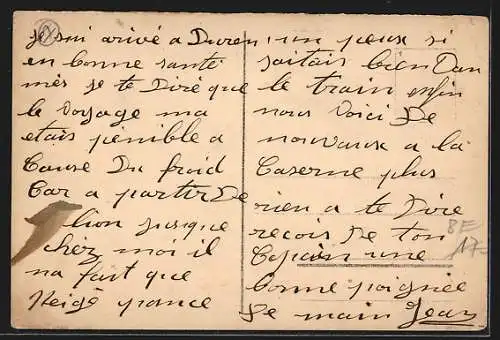 Je sui arivé a Duren
en bonne santé
mès je te Diré que
le voyage ma
etais pénible a
Cause Du froid
Car a partir De
lion jusque
chez moi il
na fait que
Neigé pance
un peux si
jaitais bien Dan
le train enfin
nous voici De
nouvaux a la
Caserne plus
rien a te Dire
recois De ton
Copain une
bonne poignée
De main Jean
BE
17-